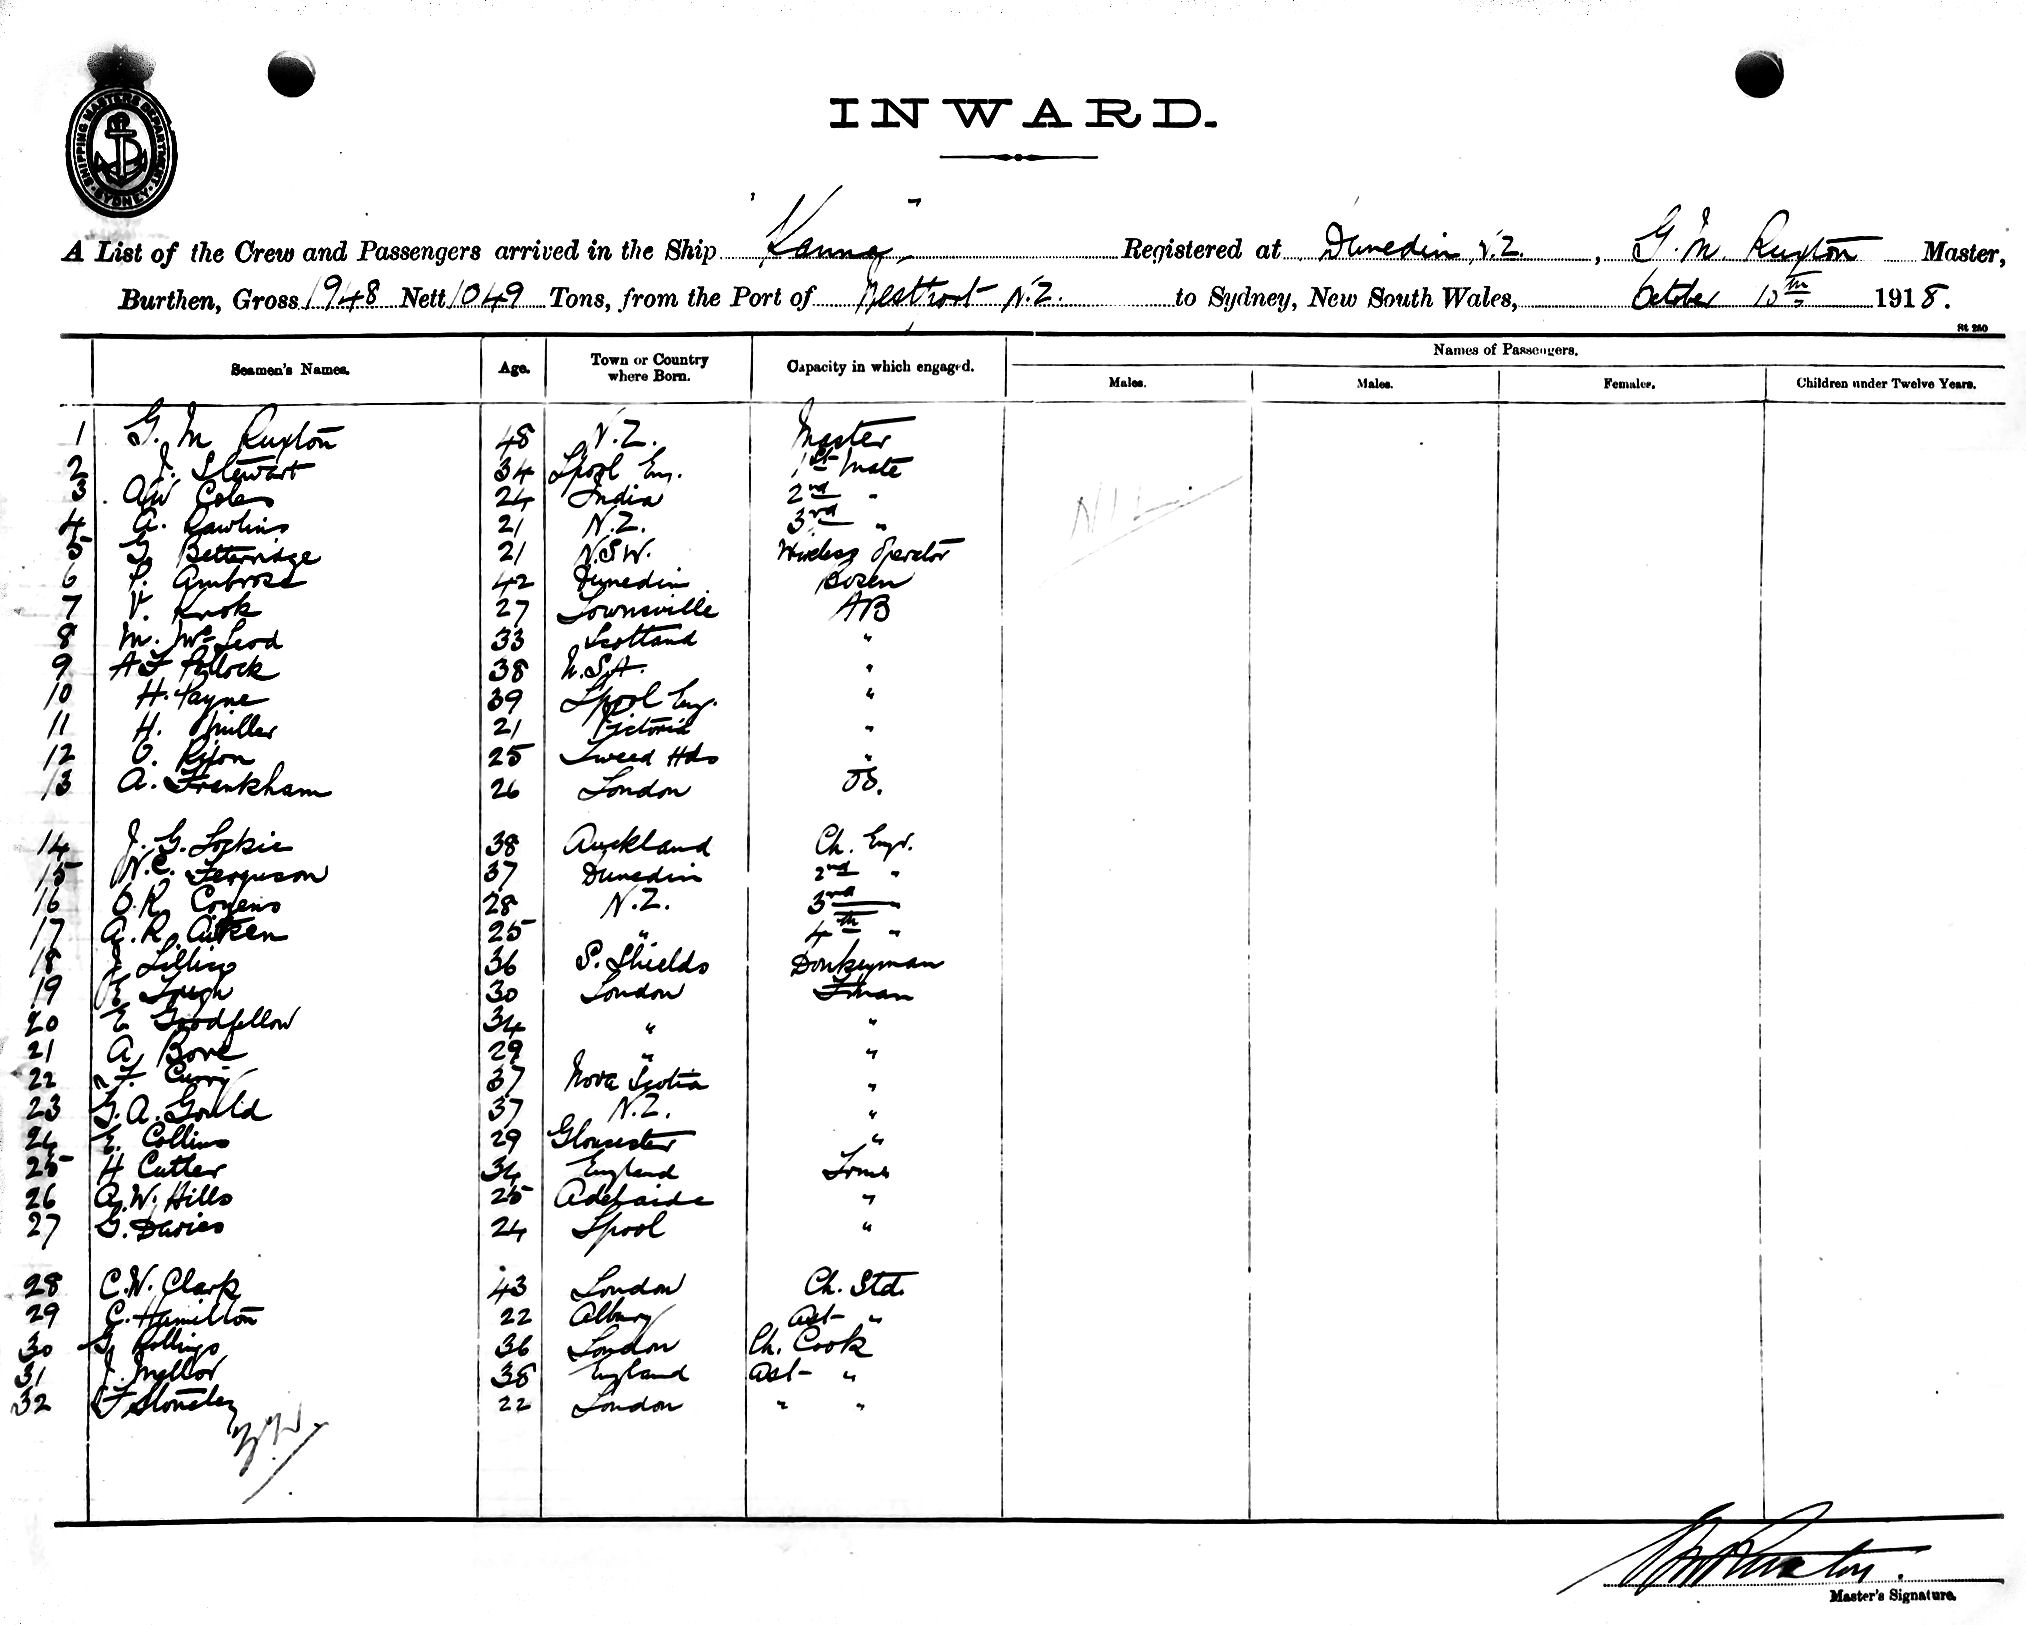 SHIPPING MASTERS DEPARTMENT. SYDNEY
INWARD.
A List of the Crew and Passengers arrived in the Ship "Kanna" Registered at Dunedin N.Z., G. M. Ruxton Master,
Burthen, Gross 1948 Nett 1049 Tons, from the Port of Westport N.Z. to Sydney, New South Wales, October 10th 1918.
St 280
Seamen's Names. Age. Town or Country where Born. Capacity in which engaged. Names of Passengers.
Males. Males. Females. Children under Twelve Years.
1 G. M Ruxton 48 N.Z. Master
2 J. Stewart 34 Lpool Eng. 1st Mate
3 AW Coles 24 India 2nd "
4 A. Rawlins 21 N.Z. 3rd "
5 G Betteridge 21 N.S.W. Wireless Operator
6 P. Ambrose 42 Dunedin Bosen
7 V. Knok 27 Townsville AB
8 M. McLeod 33 Scotland "
9 A F Pollock 38 U.S.A. "
10 H. Payne 39 Lpool Eng. "
11 H. Miller 21 Victoria "
12 O. Rixon 25 Tweed Hds "
13 A. Frankham 26 London OS.
14 J. G. Lockie 38 Auckland Ch. Engr.
15 N.C. Ferguson 37 Dunedin 2nd "
16 O.R Cozens 28 N.Z. 3rd
17 A. R. Aitken 25 " 4th "
18 J Lillico 36 S. Shields Donkeyman
19 Tough 30 London Fman
20 E Goodfellow 34 " "
21 A Bone 29 " "
22 F. Curry 37 Nova Scotia "
23 G. A. Gould 37 N.Z. "
24 E. Collins 29 Gloucester "
25 H Cutler 34 England Trmr
26 A. W. Hills 25 Adelaide "
27 G. Davies 24 Lpool "
28 C. W. Clark 43 London Ch. Std.
29 C. Hamilton 22 Albury Ast "
30 G Rollings 36 London Ch. Cook
31 J. Mellor 38 England Ast "
32 F Stoneley 22 London " "
Nil
G M Ruxton.
Master's Signature.